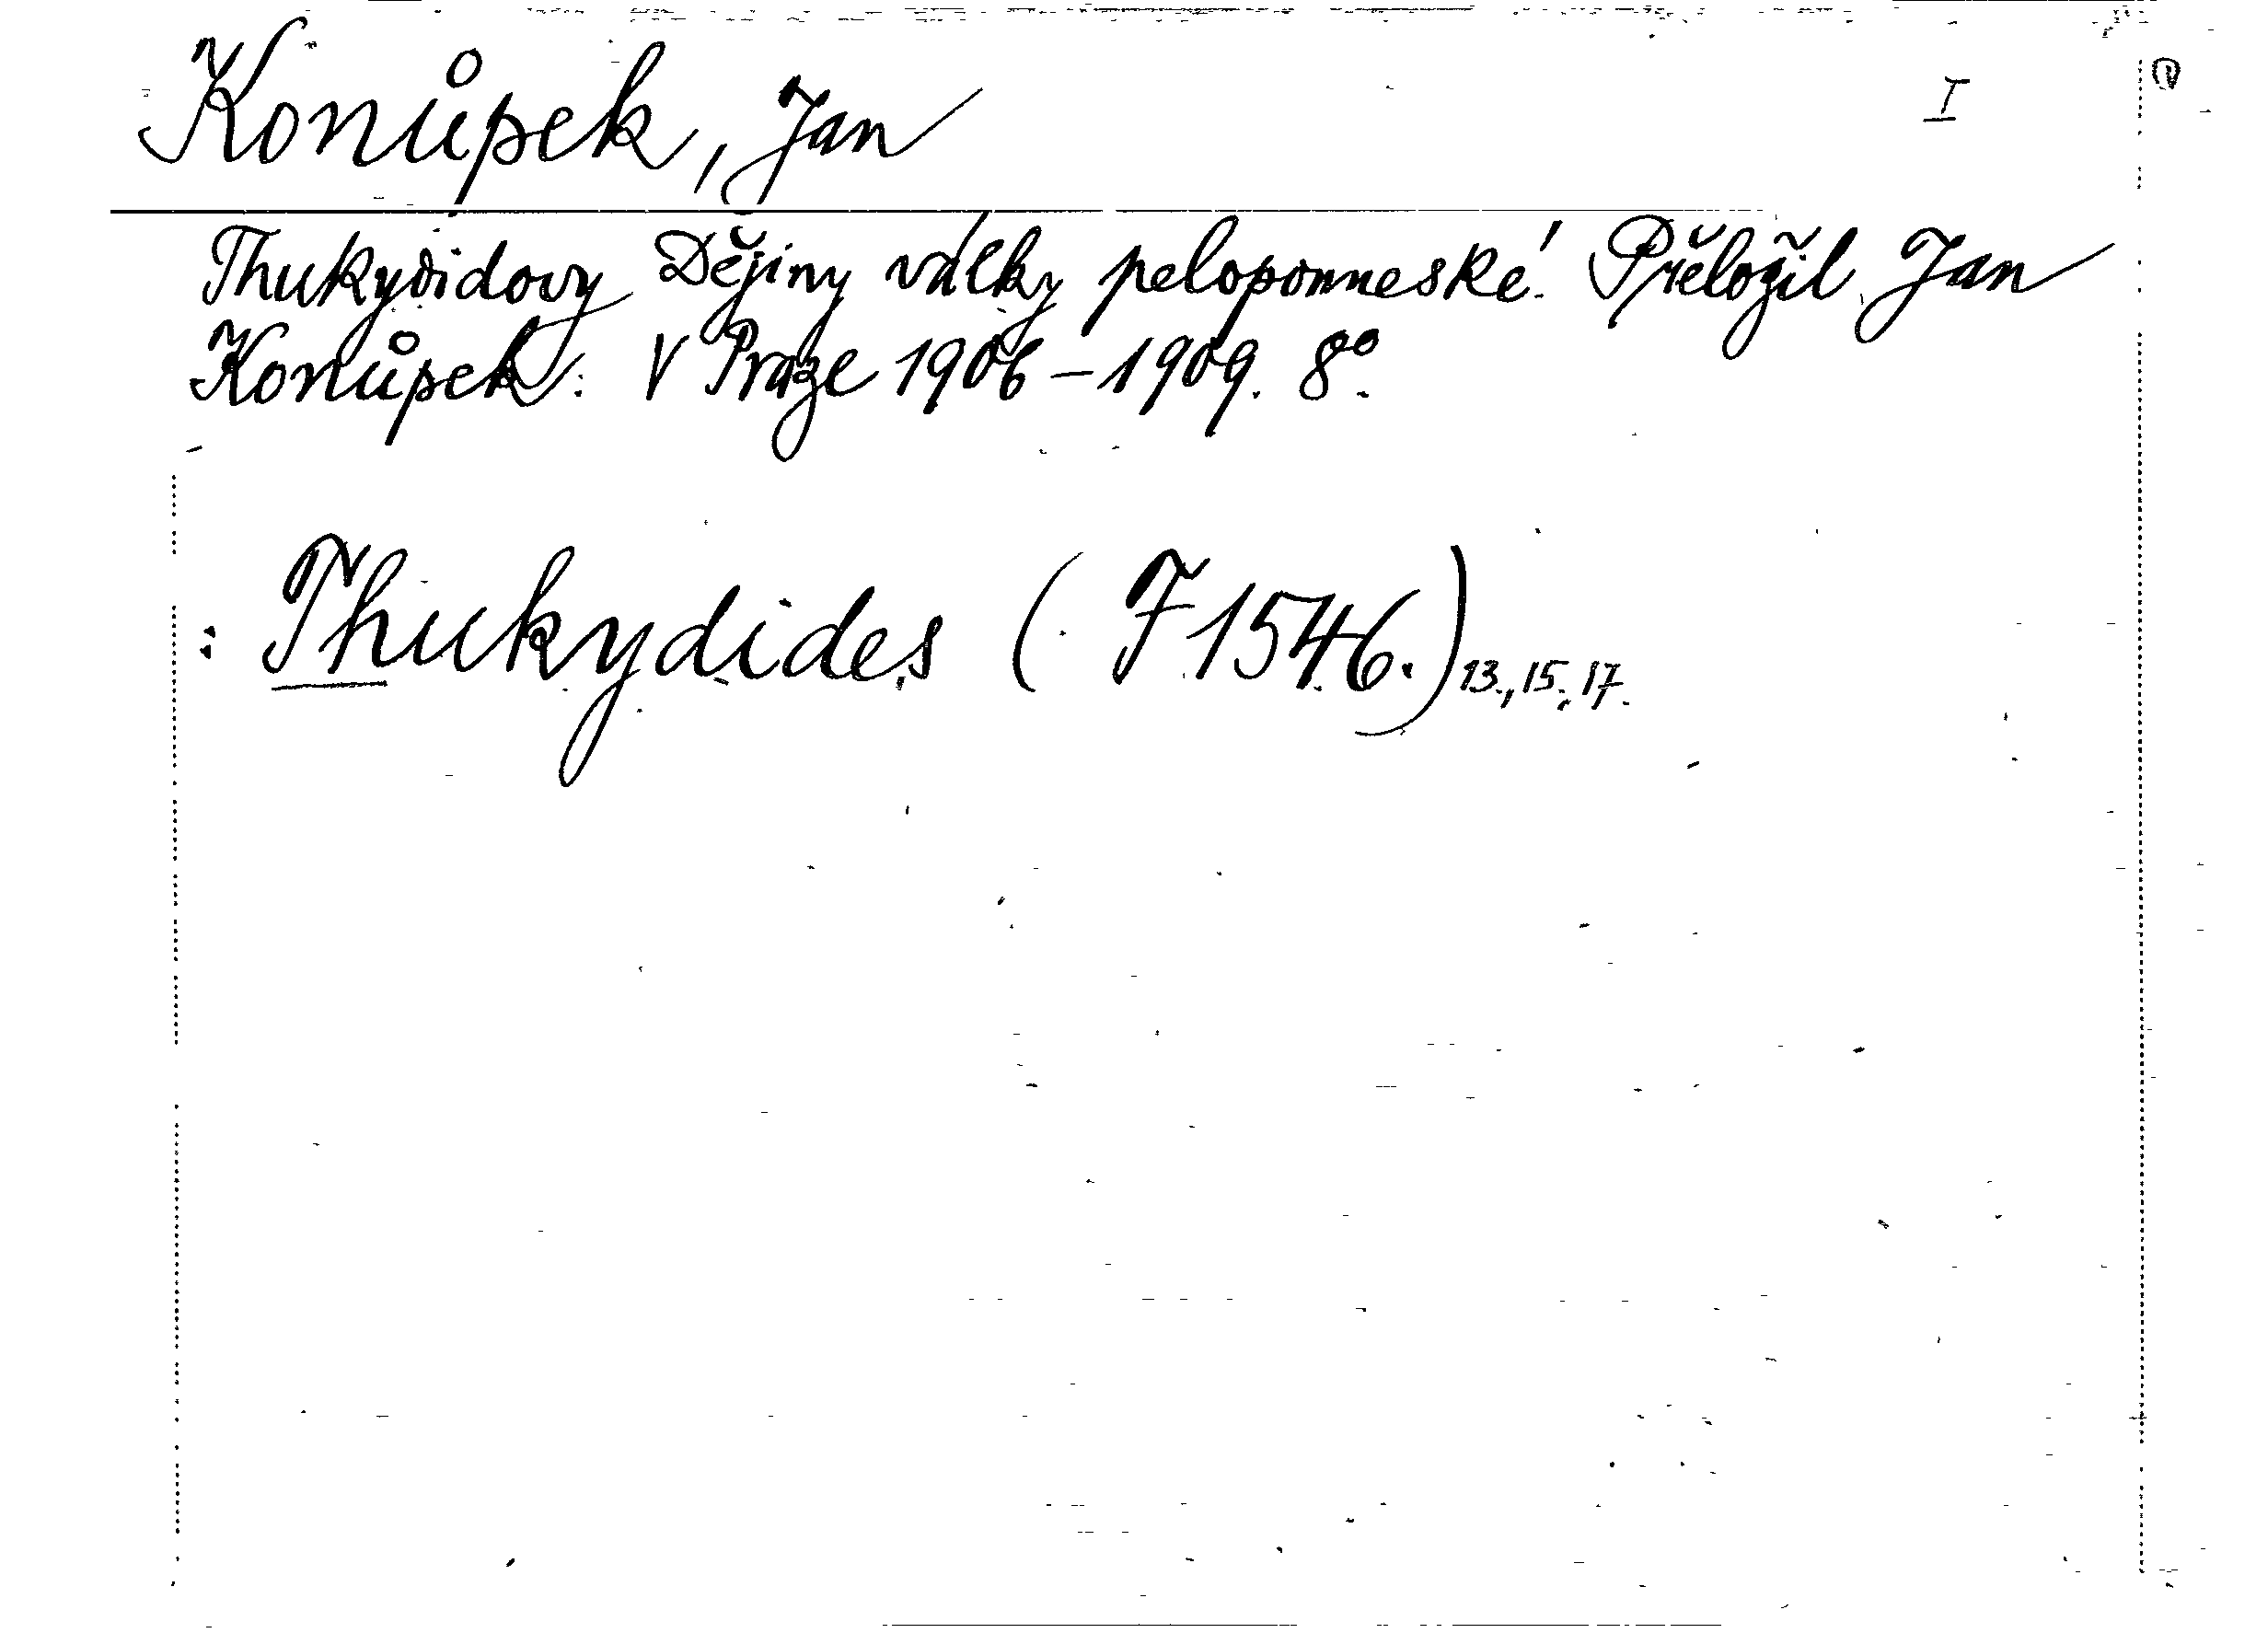 Konůpek, Jan I
Thukydidovy Dějiny války peloponneské. Přeložil Jan
Konůpek. V Praze 1906-1909. 8°.
: Thukydides (F 1546.) 13., 15., 17.